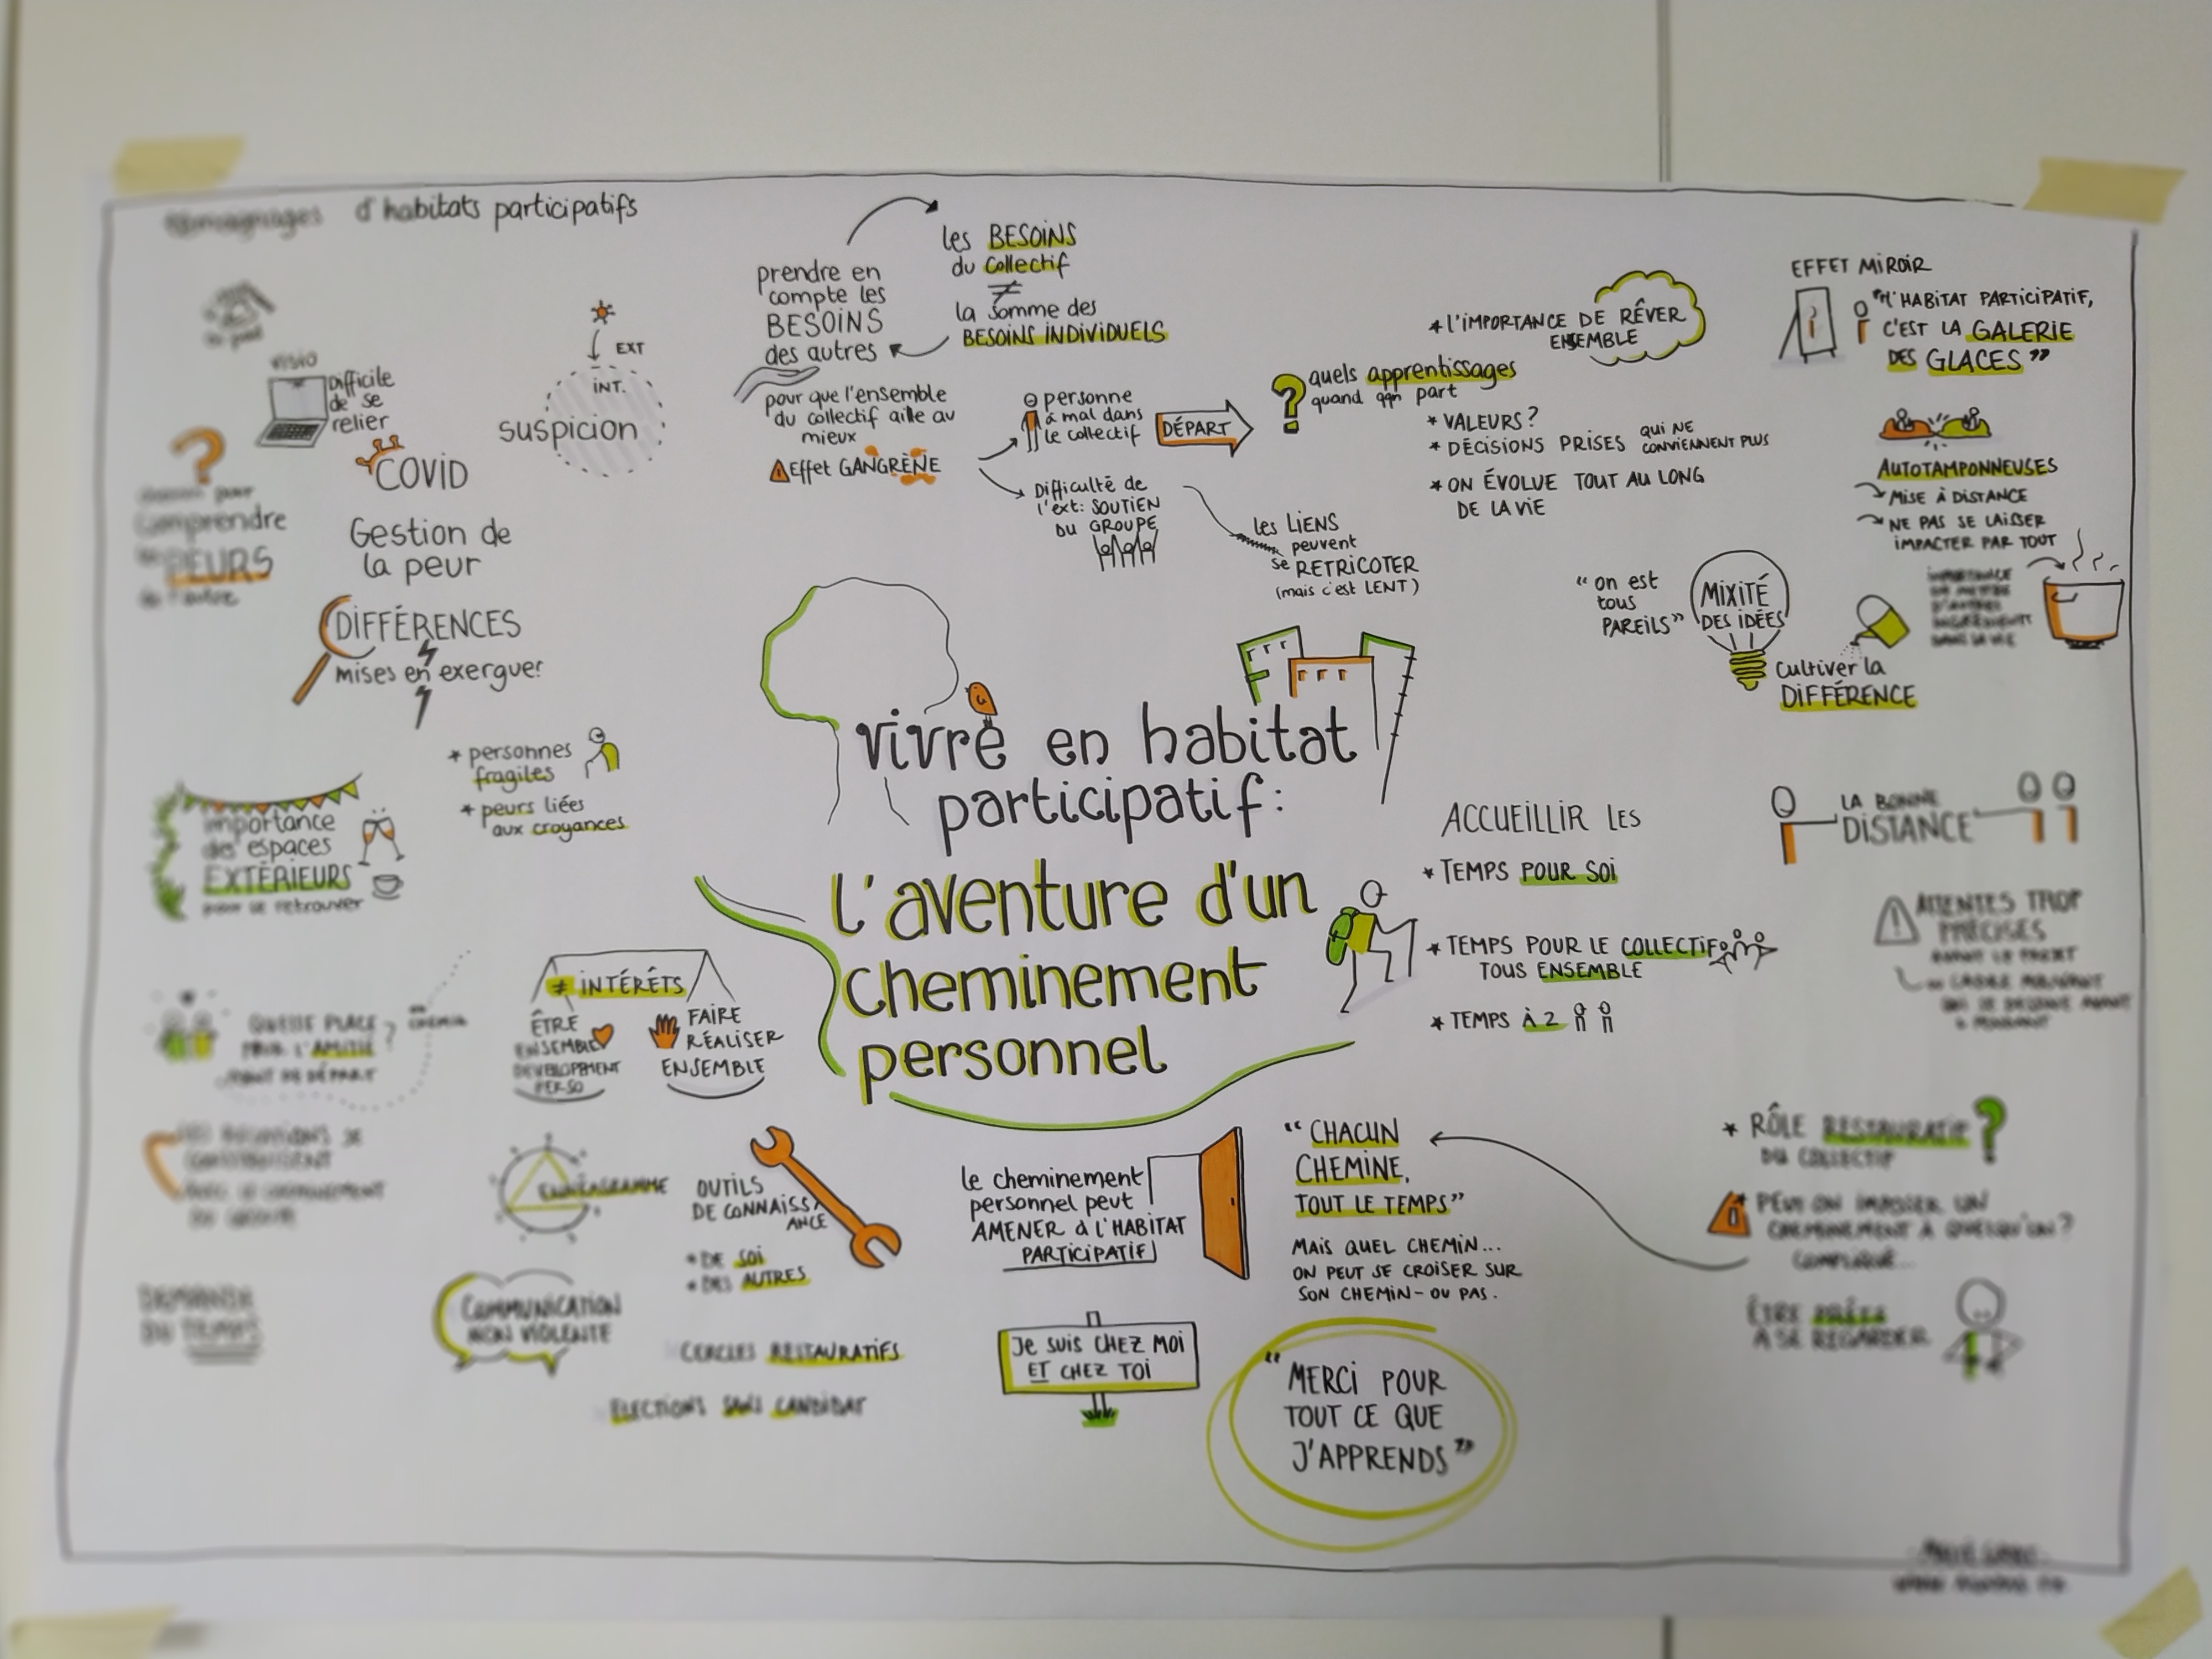 témoignages d'habitats participatifs
visio
Difficile
de se
relier
COVID
Gestion de
la peur
comprendre
PEURS
de l'autre
DIFFÉRENCES
mises en exergue!
* personnes
fragiles
* peurs liées
aux croyances
EXT
INT.
suspicion
prendre en
compte les
BESOINS
des autres
les BESOINS
du collectif
≠
la somme des
BESOINS INDIVIDUELS
pour que l'ensemble
du collectif aille au
mieux
Effet GANGRÈNE
personne
à mal dans
le collectif
DÉPART
Difficulté de
l'ext: SOUTIEN
DU GROUPE
les LIENS
peuvent
se RETRICOTER
(mais c'est LENT)
? quels apprentissages
quand qqn part
* L'IMPORTANCE DE RÊVER
ENSEMBLE
* VALEURS?
* DÉCISIONS PRISES QUI NE
CONVIENNENT PLUS
* ON ÉVOLUE TOUT AU LONG
DE LA VIE
EFFET MIROIR
"L'HABITAT PARTICIPATIF,
C'EST LA GALERIE
DES GLACES"
AUTOTAMPONNEUSES
MISE À DISTANCE
NE PAS SE LAISSER
IMPACTER PAR TOUT
"on est
tous
PAREILS"
MIXITÉ
DES IDÉES
Cultiver la
DIFFÉRENCE
vivre en habitat
participatif:
l'aventure d'un
cheminement
personnel
importance
des espaces
EXTÉRIEURS
pour se retrouver
QUELLE PLACE
POUR L'AMITIÉ ?
POINT DE DÉPART
≠ INTÉRÊTS
ÊTRE
ENSEMBLE
DEVELOPPEMENT
PERSO
FAIRE
RÉALISER
ENSEMBLE
ACCUEILLIR LES
* TEMPS POUR SOI
* TEMPS POUR LE COLLECTIF
TOUS ENSEMBLE
* TEMPS À 2
LA BONNE
DISTANCE
ATTENTES TROP
PRÉCISES
ENNÉAGRAMME
OUTILS
DE CONNAISS
ANCE
* DE SOI
* DES AUTRES
COMMUNICATION
NON VIOLENTE
CERCLES RESTAURATIFS
ELECTIONS SANS CANDIDAT
DEMANDE
DU TEMPS
le cheminement
personnel peut
AMENER à L'HABITAT
PARTICIPATIF
"CHACUN
CHEMINE,
TOUT LE TEMPS"
MAIS QUEL CHEMIN...
ON PEUT SE CROISER SUR
SON CHEMIN - OU PAS.
* RÔLE RESTAURATIF ?
DU COLLECTIF
PEUT ON IMPOSER UN
CHEMINEMENT À QUELQU'UN?
COMPLIQUÉ...
ÊTRE PRÊTS
À SE REGARDER
JE SUIS CHEZ MOI
ET CHEZ TOI
"MERCI POUR
TOUT CE QUE
J'APPRENDS"